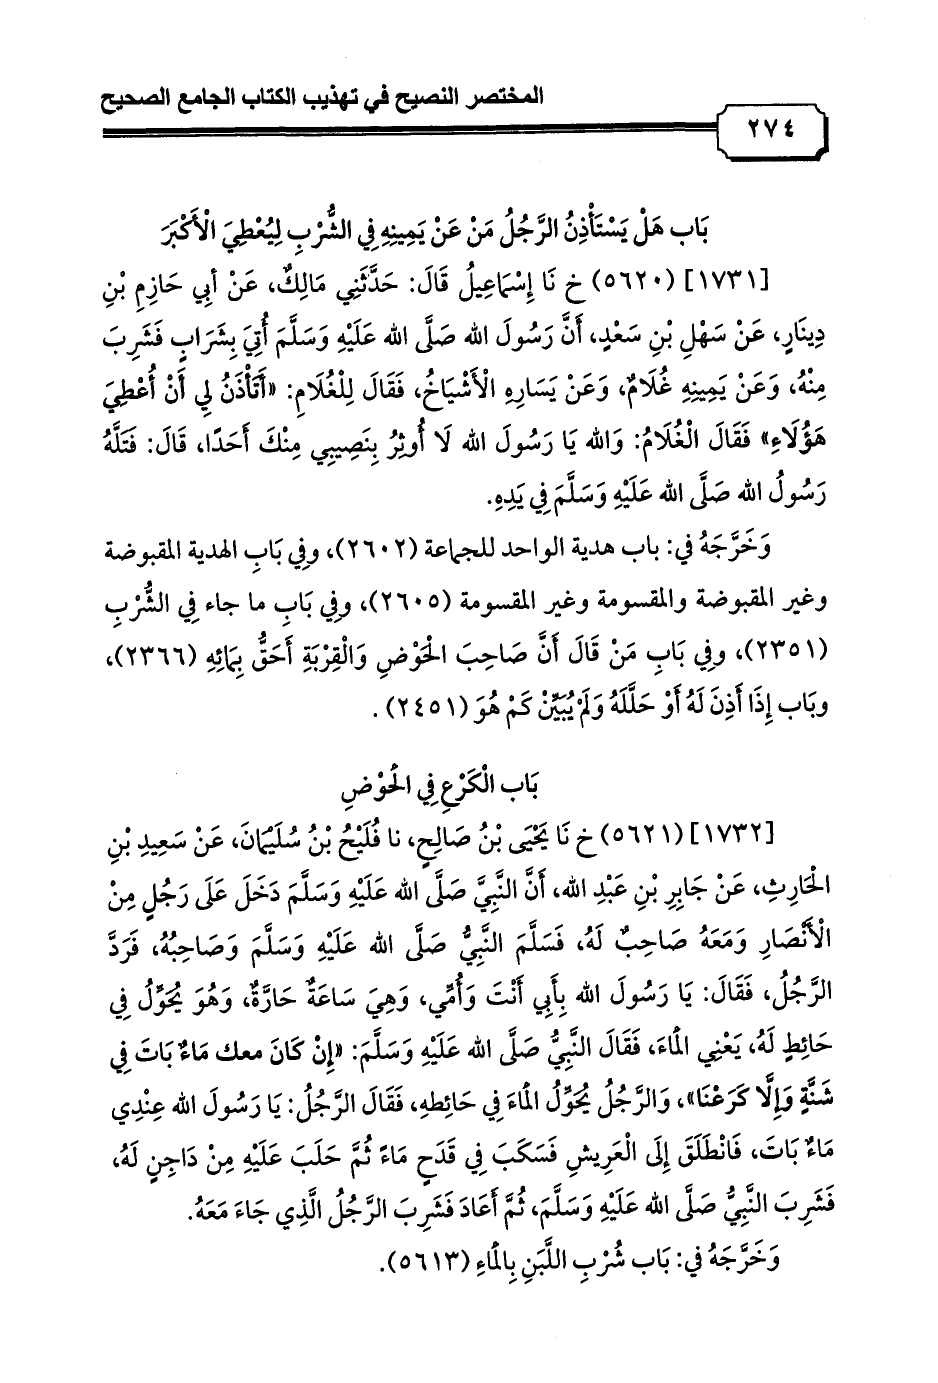 المختصر النصيح في تهذيب الكتاب الجامع الصحيح
٢٧٤
بَاب هَلْ يَسْتَأْذِنُ الرَّجُلُ مَنْ عَنْ يَمِينِهِ فِي الشُّرْبِ لِيُعْطِيَ الْأَكْبَرَ
[١٧٣١] (٥٦٢٠) خ نَا إِسْمَاعِيلُ قَالَ: حَدَّثَنِي مَالِكٌ، عَنْ أبِي حَازِمِ بْنِ
دِينَارٍ، عَنْ سَهْلِ بْنِ سَعْدٍ، أَنَّ رَسُولَ الله صَلَّى الله عَلَيْهِ وَسَلَّمَ أُتِيَ بِشَرَابٍ فَشَرِبَ
مِنْهُ، وَعَنْ يَمِينِهِ غُلَامٌ، وَعَنْ يَسَارِهِ الْأَشْيَاخُ، فَقَالَ لِلْغُلَامِ: «أَتَأْذَنُ لِي أَنْ أُعْطِيَ
هَؤُلَاءِ» فَقَالَ الْغُلَامُ: وَالله يَا رَسُولَ الله لَا أُوثِرُ بِنَصِيبِي مِنْكَ أَحَدًا، قَالَ: فَتَلَّهُ
رَسُولُ الله صَلَّى الله عَلَيْهِ وَسَلَّمَ فِي يَدِهِ.
وَخَرَّجَهُ فِي: باب هدية الواحد للجماعة (٢٦٠٢)، وفِي بَابِ الهدية المقبوضة
وغير المقبوضة والمقسومة وغير المقسومة (٢٦٠٥)، وفِي بَابِ ما جاء فِي الشُّرْبِ
(٢٣٥١)، وفِي بَابِ مَنْ قَالَ أَنَّ صَاحِبَ الحَوْضِ وَالْقِرْبَةِ أَحَقُّ بِمَائِهِ (٢٣٦٦)،
وبَاب إِذَا أَذِنَ لَهُ أَوْ حَلَّلَهُ وَلَمْ يُبَيِّنْ كَمْ هُوَ (٢٤٥١) .
بَاب الْكَرْعِ فِي الْحَوْضِ
[١٧٣٢] (٥٦٢١) خ نَا يَحْيَى بْنُ صَالِحٍ، نا فُلَيْحُ بْنُ سُلَيْمَانَ، عَنْ سَعِيدِ بْنِ
الْحَارِثِ، عَنْ جَابِرِ بْنِ عَبْدِ الله، أَنَّ النَّبِيَّ صَلَّى الله عَلَيْهِ وَسَلَّمَ دَخَلَ عَلَى رَجُلٍ مِنْ
الْأَنْصَارِ وَمَعَهُ صَاحِبٌ لَهُ، فَسَلَّمَ النَّبِيُّ صَلَّى الله عَلَيْهِ وَسَلَّمَ وَصَاحِبُهُ، فَرَدَّ
الرَّجُلُ، فَقَالَ: يَا رَسُولَ الله بِأَبِي أَنْتَ وَأُمِّي، وَهِيَ سَاعَةٌ حَارَّةٌ، وَهُوَ يُحَوِّلُ فِي
حَائِطٍ لَهُ، يَعْنِي الْمَاءَ، فَقَالَ النَّبِيُّ صَلَّى الله عَلَيْهِ وَسَلَّمَ: «إِنْ كَانَ معك مَاءٌ بَاتَ فِي
شَنَّةٍ وَإِلَّا كَرَعْنَا»، وَالرَّجُلُ يُحَوِّلُ الْمَاءَ فِي حَائِطهِ، فَقَالَ الرَّجُلُ: يَا رَسُولَ الله عِنْدِي
مَاءٌ بَاتَ، فَانْطَلَقَ إِلَى الْعَرِيشِ فَسَكَبَ فِي قَدَحٍ مَاءً ثُمَّ حَلَبَ عَلَيْهِ مِنْ دَاجِنٍ لَهُ،
فَشَرِبَ النَّبِيُّ صَلَّى الله عَلَيْهِ وَسَلَّمَ، ثُمَّ أَعَادَ فَشَرِبَ الرَّجُلُ الَّذِي جَاءَ مَعَهُ.
وَخَرَّجَهُ فِي: بَاب شُرْبِ اللَّبَنِ بِالْمَاءِ (٥٦١٣).